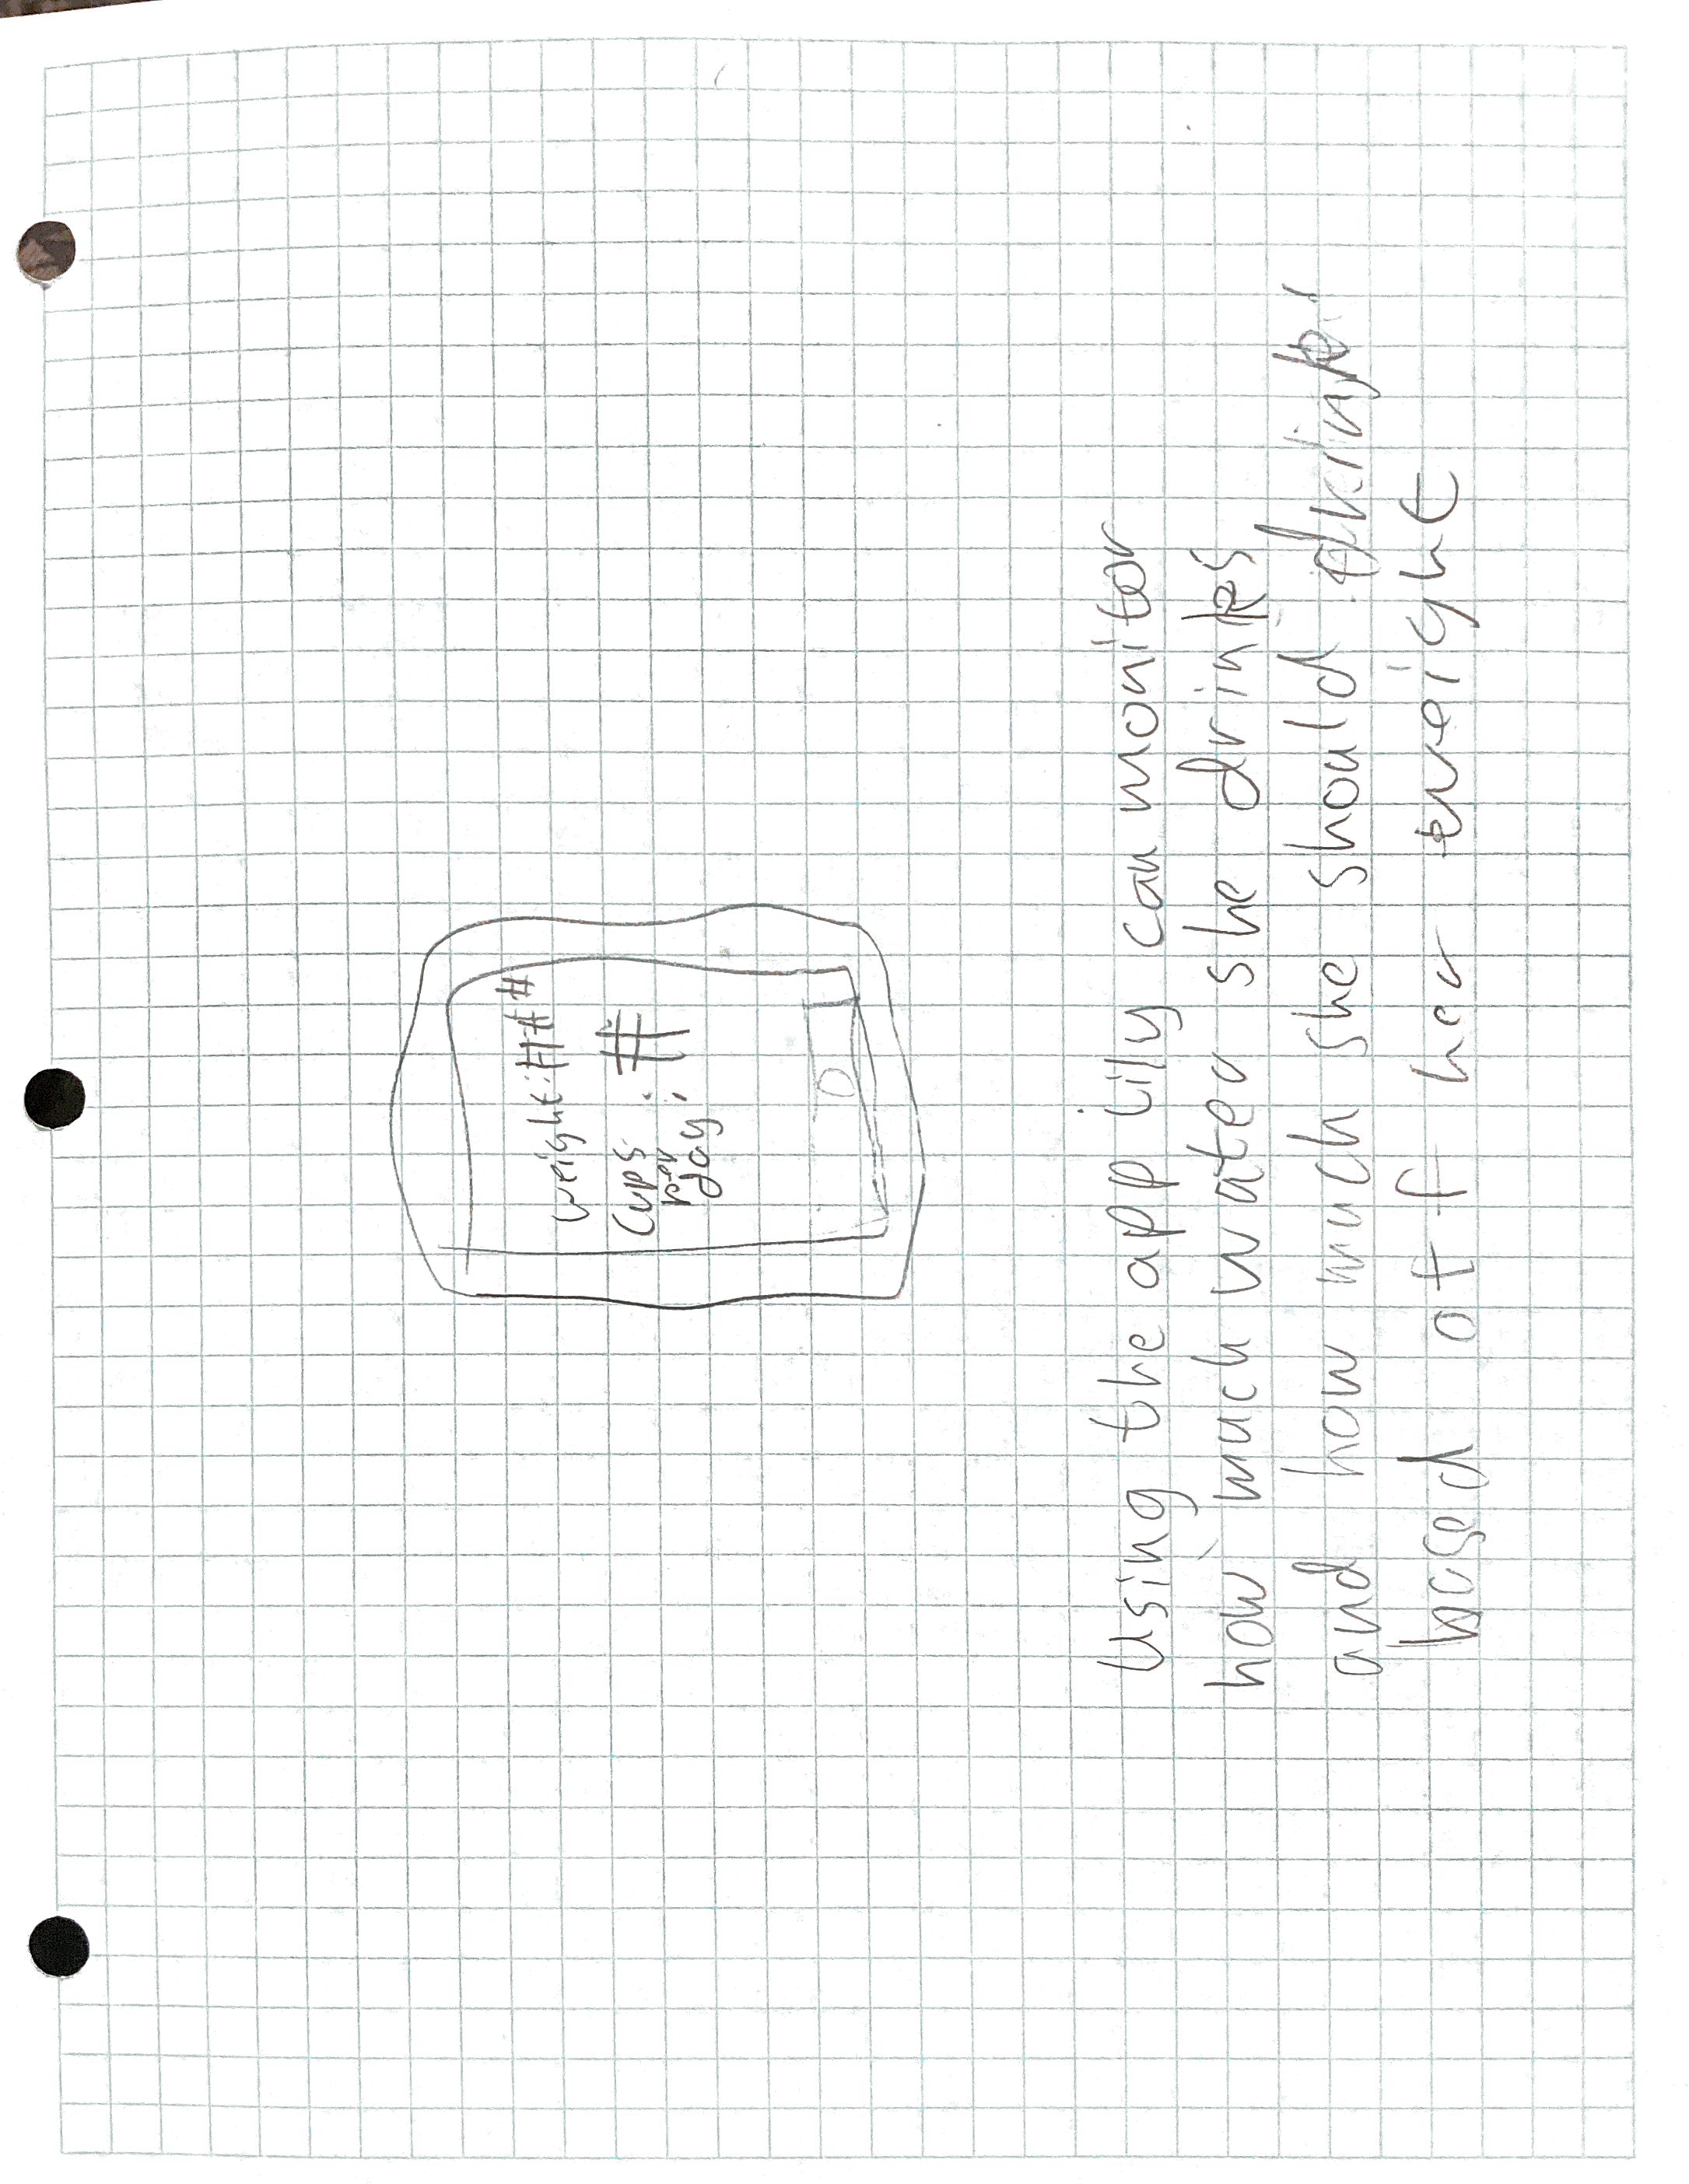 weight:###
Cups : #
per
day;
Using the app lily can monitor
how much water she drinks
and how much she should drink
based off her weight